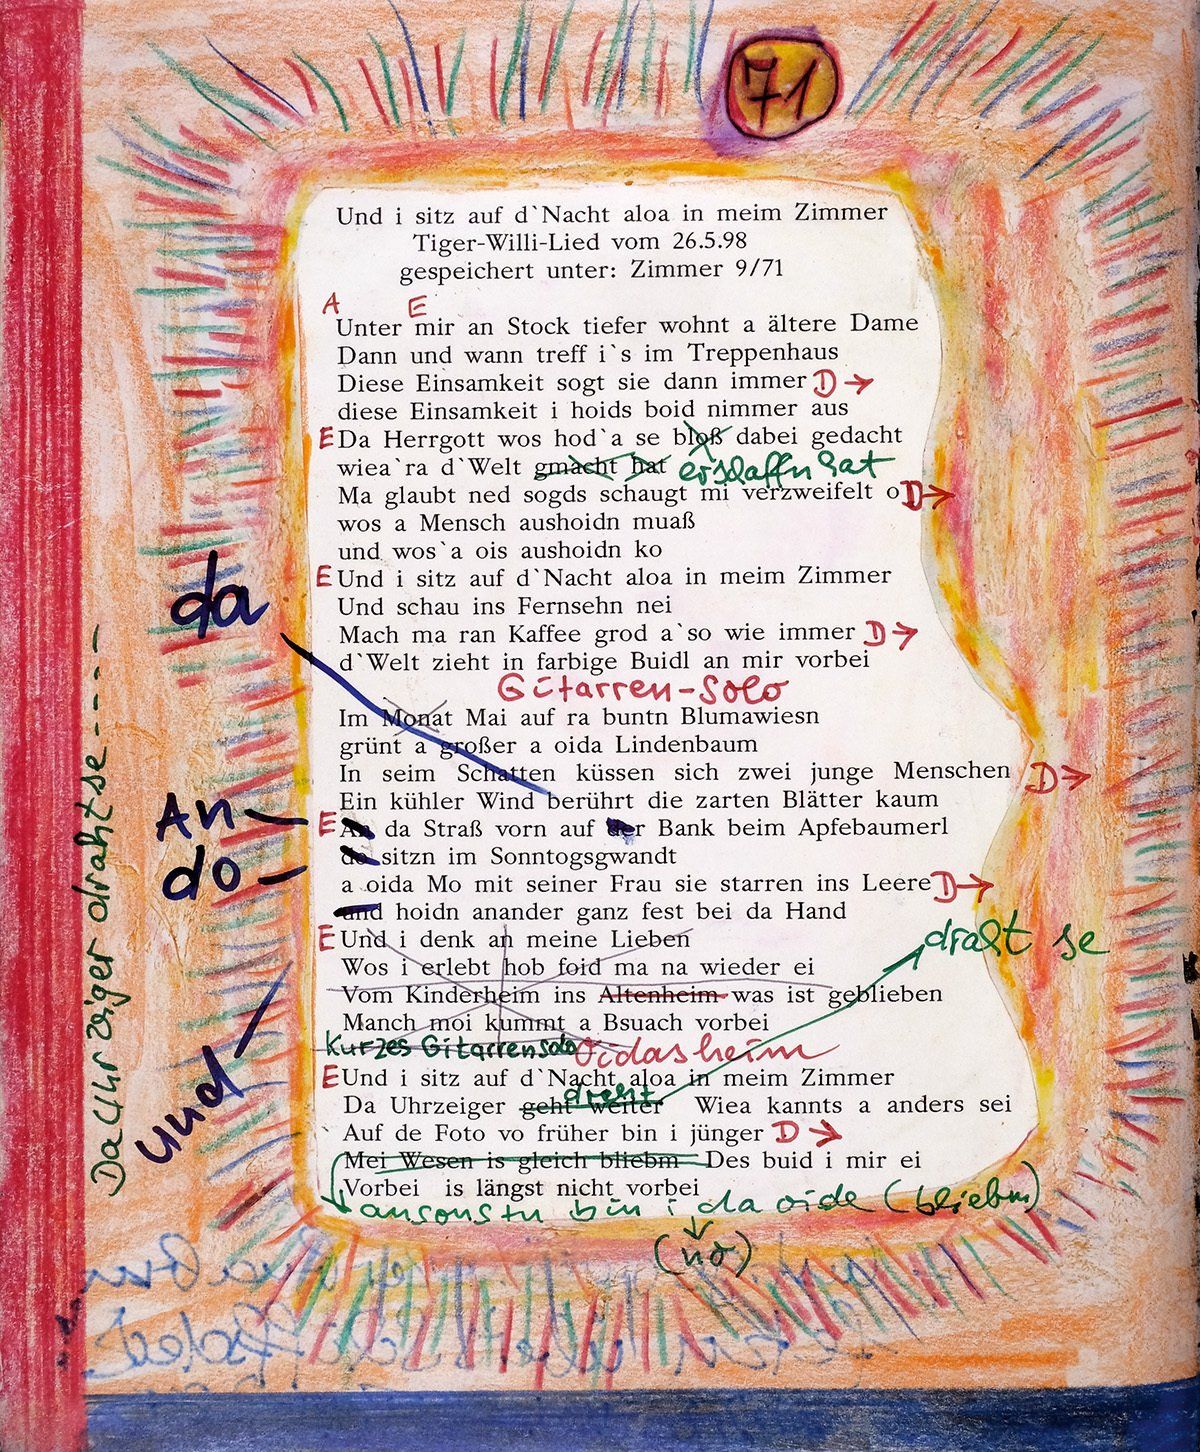 71
Und i sitz auf d`Nacht aloa in meim Zimmer
Tiger-Willi-Lied vom 26.5.98
gespeichert unter: Zimmer 9/71
A E
Unter mir an Stock tiefer wohnt a ältere Dame
Dann und wann treff i`s im Treppenhaus
Diese Einsamkeit sogt sie dann immer D →
diese Einsamkeit i hoids boid nimmer aus
E Da Herrgott wos hod`a se bloß dabei gedacht
wiea`ra d`Welt gmacht hat erschaffn hat
Ma glaubt ned sogds schaugt mi verzweifelt o D →
wos a Mensch aushoidn muaß
und wos`a ois aushoidn ko
E Und i sitz auf d`Nacht aloa in meim Zimmer
da
Und schau ins Fernsehn nei
Mach ma ran Kaffee grod a`so wie immer D →
d`Welt zieht in farbige Buidl an mir vorbei
Gitarren-Solo
Im Monat Mai auf ra buntn Blumawiesn
grünt a großer a oida Lindenbaum
In seim Schatten küssen sich zwei junge Menschen D →
Ein kühler Wind berührt die zarten Blätter kaum
An
E An da Straß vorn auf der Bank beim Apfebaumerl
do
do sitzn im Sonntogsgwandt
a oida Mo mit seiner Frau sie starren ins Leere D →
und hoidn anander ganz fest bei da Hand
E Und i denk an meine Lieben
draht se
Wos i erlebt hob foid ma na wieder ei
Vom Kinderheim ins Altenheim was ist geblieben
Manch moi kummt a Bsuach vorbei
Kurzes Gitarrensolo Oidasheim
und
E Und i sitz auf d`Nacht aloa in meim Zimmer
dreht
Da Uhrzeiger geht weiter Wiea kannts a anders sei
Auf de Foto vo früher bin i jünger D →
Mei Wesen is gleich bliebm Des buid i mir ei
Vorbei is längst nicht vorbei
ansonstn bin i da oide (bliebm)
(no)
Da Uhrzeiger draht se - - - -